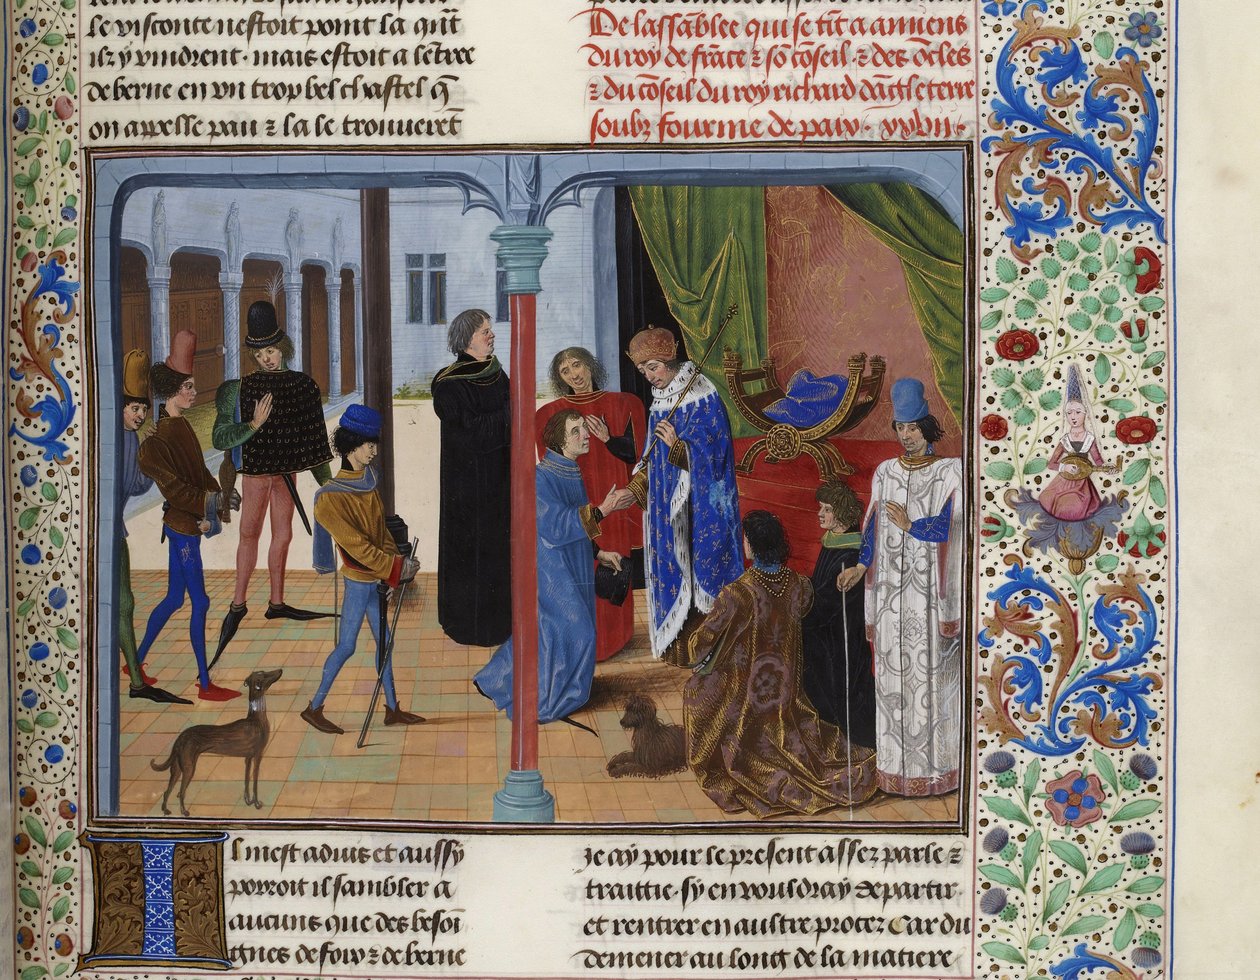 le visconte nestoit point la q̄nt
ilz y vindrent · mais estoit a lentre
de berne en vn trop bel chastel q̄
on appelle pau ⁊ la le trouuerēt
De lassēblee qui se tīt a amiens
du roy de frāce ⁊ sō cōseil ⁊ des ōcles
⁊ du cōseil du roy richard dāgleterre
soubz fourme de paix · xxvii ·
Il mest aduis et aussy
porroit il sambler a
aucuns que des besoi
gnes de foix ⁊ de berne
je ay pour le present assez parle ⁊
traittie · sy en vouldray departir ·
et rentrer en aultre proces Car du
demener au long de la matiere